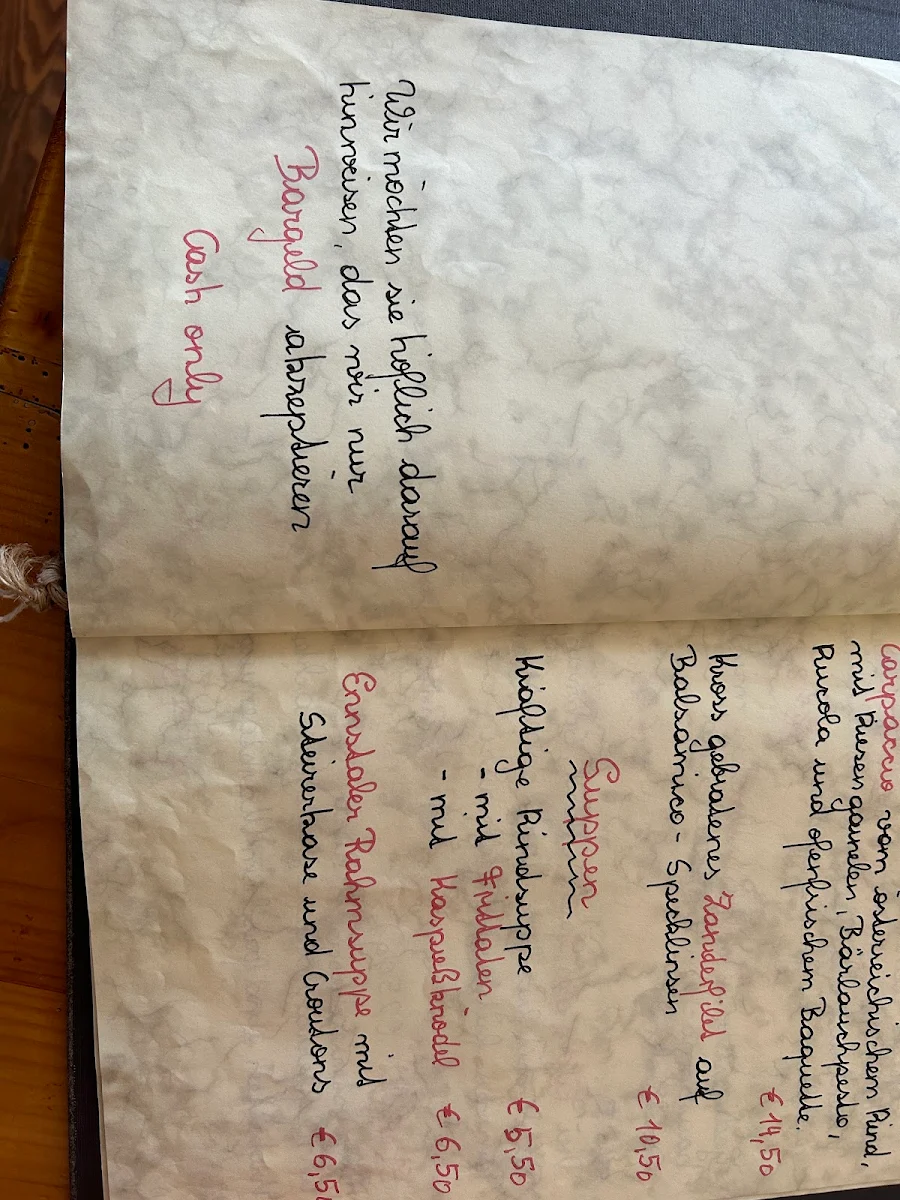 Wir möchten sie höflich darauf
hinweisen, das wir nur
Bargeld akzeptieren
Cash only
Carpaccio vom österreichischem Rind,
mit Riesengarnelen, Bärlauchpesto,
Rucola und ofenfrischem Baguette.
€ 14,50
Kross gebratenes Zanderfilet auf
Balsamico - Specklinsen
€ 10,50
Suppen
Kräftige Rindsuppe
- mit Frittaten € 5,50
- mit Kaspreßknödel € 6,50
Ennstaler Rahmsuppe mit
Steirerkase und Croutons € 6,50